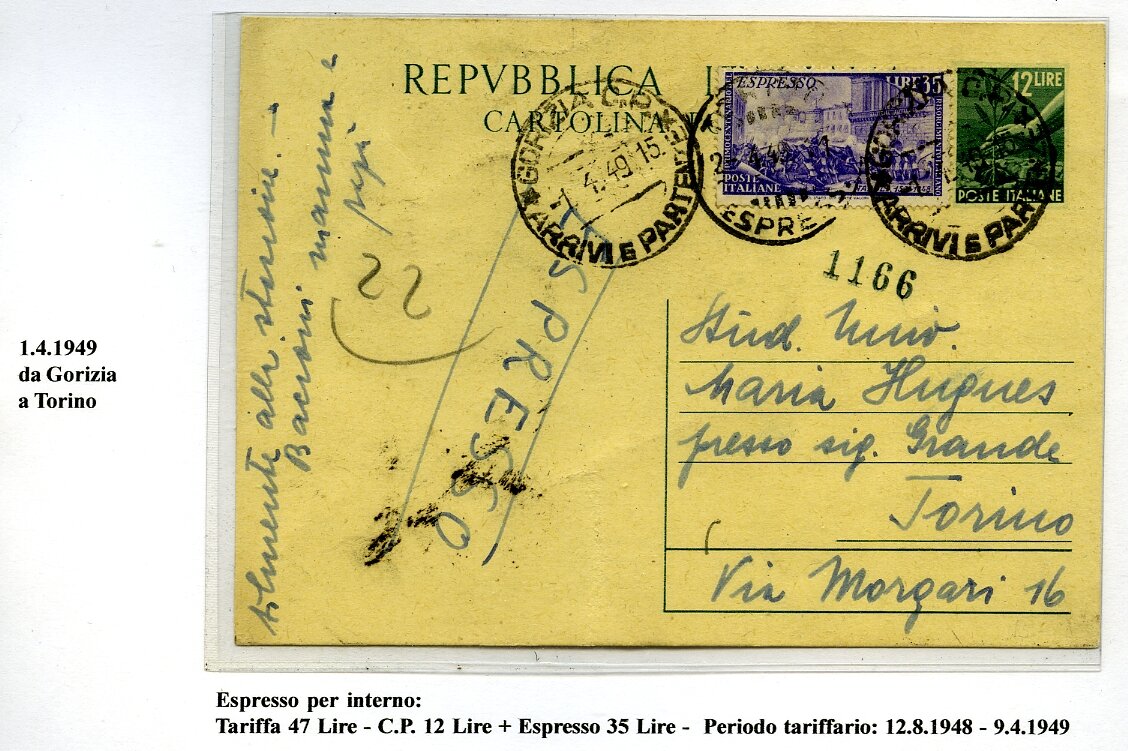 REPVBBLICA
CARTOLINA
ESPRESSO LIRE 35
POSTE
ITALIANE
12 LIRE
POSTE ITALIANE
GORIZIA C.P.
4.49.15
ARRIVI E PARTENZE
ESPRE
GORIZIA
ARRIVI E PARTENZE
1166
ESPRESSO
22
alla stazione. -
Bacioni mamma e
papà
Stud. Univ.
Maria Hugues
presso sig. Grande
Torino
Via Morgari 16
1.4.1949
da Gorizia
a Torino
Espresso per interno:
Tariffa 47 Lire - C.P. 12 Lire + Espresso 35 Lire - Periodo tariffario: 12.8.1948 - 9.4.1949